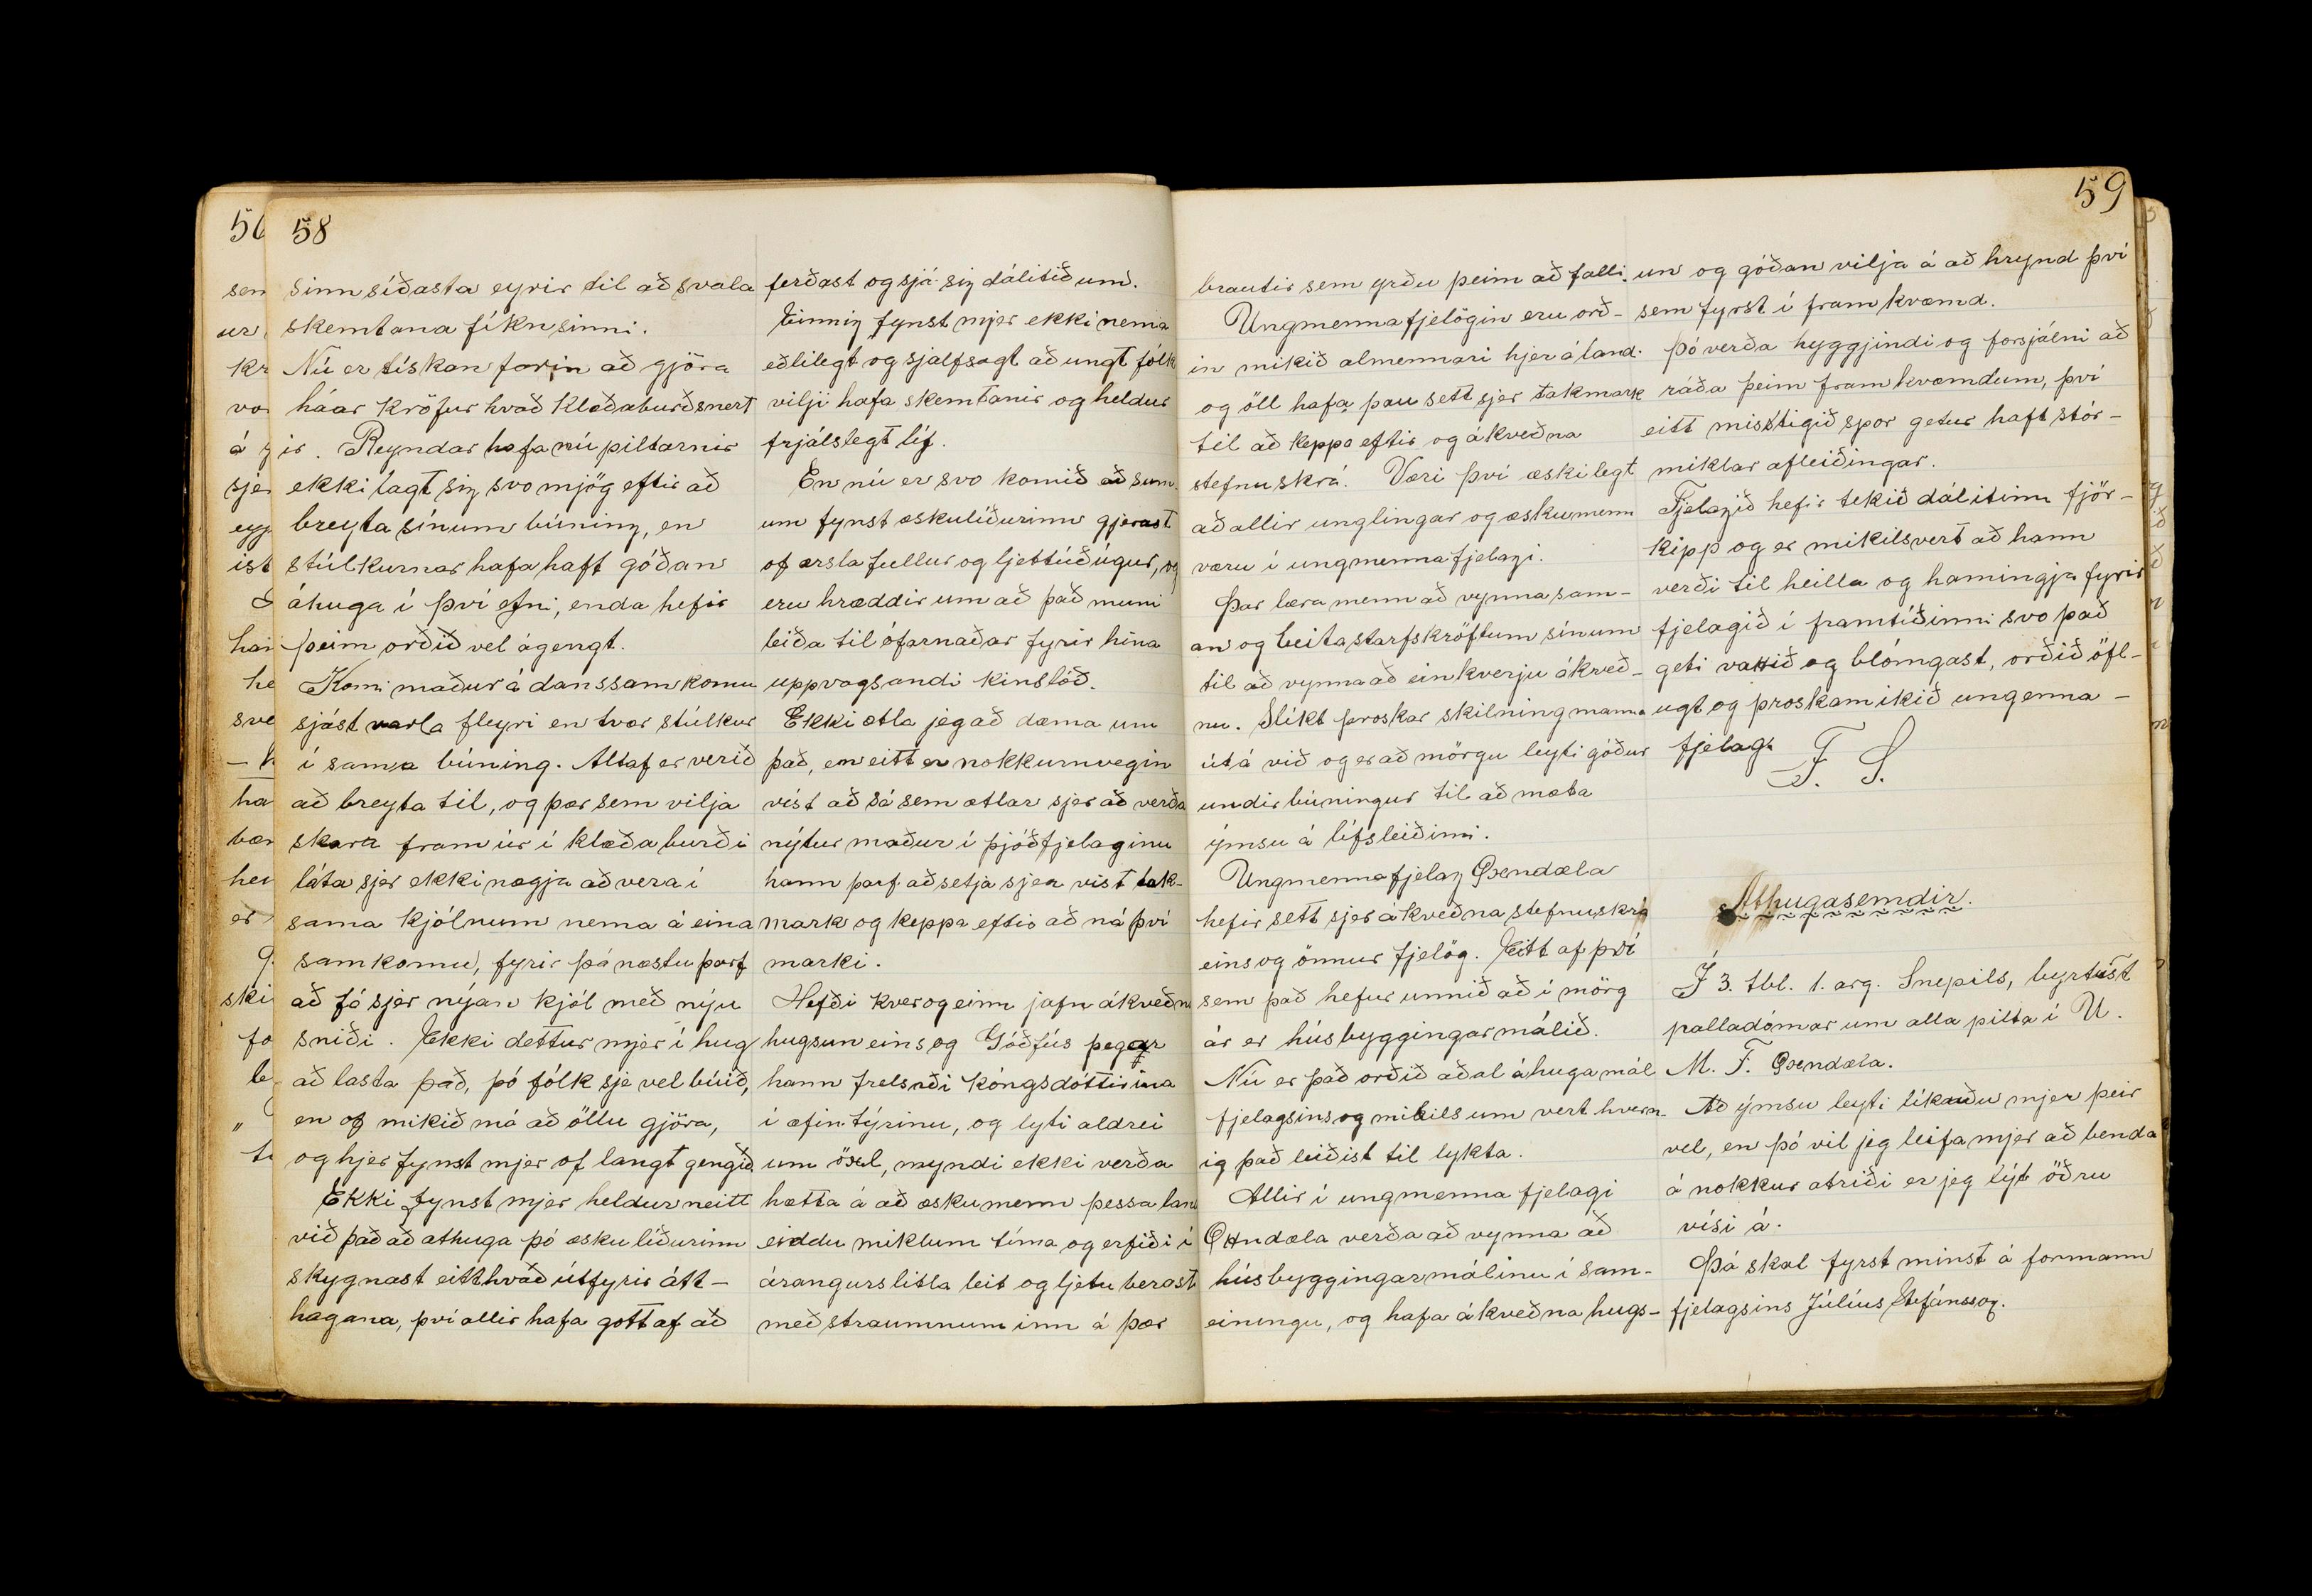 58
sinn síðasta eyrir til að svala
skemtana fíkn sinni.
Nú er tískan farin að gjöra
háar kröfur hvað klæðaburð snert
ir. Reyndar hafa nú piltarnir
ekki lagt sig svo mjög eftir að
breyta sínum búning, en
stúlkurnar hafa haft góðan
áhuga í því efni, enda hefir
þeim orðið vel ágengt.
Komi maður á danssamkomu
sjást varla fleyri en tvær stúlkur
í sama búning. Altaf er verið
að breyta til, og þær sem vilja
skara fram úr í klæðaburði
láta sjer ekki nægja að vera í
sama kjólnum nema á eina
samkomu, fyrir þá næstu þarf
að fá sjer nýjan kjól með nýju
sniði. Ekki dettur mjer í hug
að lasta það, þó fólk sje vel búið,
en of mikið má að öllu gjöra,
og hjer fynst mjer of langt gengið.
Ekki fynst mjer heldur neitt
við það að athuga þó æskulíðurinn
skygnast eitthvað útfyrir átt-
hagana, því allir hafa gott af að
ferðast og sjá sig dálitið um.
Einnig fynst mjer ekki nema
eðlilegt og sjalfsagt að ungt fólk
vilji hafa skemtanir og heldur
frjálslegt líf.
En nú er svo komið að sum-
um fynst æskulíðurinn gjerast
of ærslafullur og ljettúðugur, og
eru hræddir um að það muni
leiða til ófarnaðar fyrir hina
uppvagsandi kinslóð.
Ekki ætla jeg að dæma um
það, en eitt er nokkurnvegin
víst að sá sem ætlar sjer að verða
nýtur maður í þjóðfjelaginu
hann þarf að setja sjer vist tak-
mark og keppa eftir að ná því
marki.
Hefði kver og einn jafn ákveðna
hugsun eins og Góðfús þegar
hann frelsaði kóngsdóttirina
í æfintýrinu, og lyti aldrei
um öxl, myndi ekki verða
hætta á að æskumenn þessa lands
eiddu miklum tíma og erfiði í
árangurslitla leit og ljetu berast
með straumnum inn á þær
59
brautir sem yrðu þeim að falli.
Ungmennafjelögin eru orð-
in mikið almennari hjer á land.
og öll hafa þau sett sjer takmark
til að keppa eftir og ákveðna
stefnuskrá. Væri því æskilegt
að allir unglingar og æskumenn
væru í ungmennafjelagi.
Þar læra menn að vynna sam-
an og beita starfskröftum sínum
til að vynna að einkverju ákveð-
nu. Slíkt þroskar skilning manna
útá við og er að mörgu leyti góður
undirbúningur til að mæta
ýmsu á lífsleiðinni.
Ungmennafjelag Öxndæla
hefir sett sjer ákveðna stefnuskrá
eins og önnur fjelög. Eitt af því
sem það hefur unnið að í mörg
ár er húsbyggingarmálið.
Nú er það orðið aðal áhugamál
fjelagsins og mikils um vert hvern-
ig það leiðist til lykta.
Allir í ungmennafjelagi
Öxndæla verða að vynna að
húsbyggingarmálinu í sam-
einingu, og hafa ákveðna hugs-
un og góðan vilja á að hrynd því
sem fyrst í framkvæmd.
Þó verða hyggjindi og forsjálni að
ráða þeim framkvæmdum, því
eitt misstigið spor getur haft stór-
miklar afleiðingar.
Fjelagið hefir tekið dálitinn fjör-
kipp og er mikilsvert að hann
verði til heilla og hamingja fyrir
fjelagið í framtíðinni svo það
geti vaxið og blómgast, orðið öfl-
ugt og þroskamikið ungenna-
fjelag.
F. S.
Athugasemdir.
Í 3. tbl. 1. arg. Snepils, byrtust
palladómar um alla pilta í U.
M. F. Öxndæla.
Að ýmsu leyti líkaðu mjer þeir
vel, en þó vil jeg leifa mjer að benda
á nokkur atriði er jeg lýt öðru
vísi á.
Þá skal fyrst minst á formann
fjelagsins Júlíus Stefánsson.